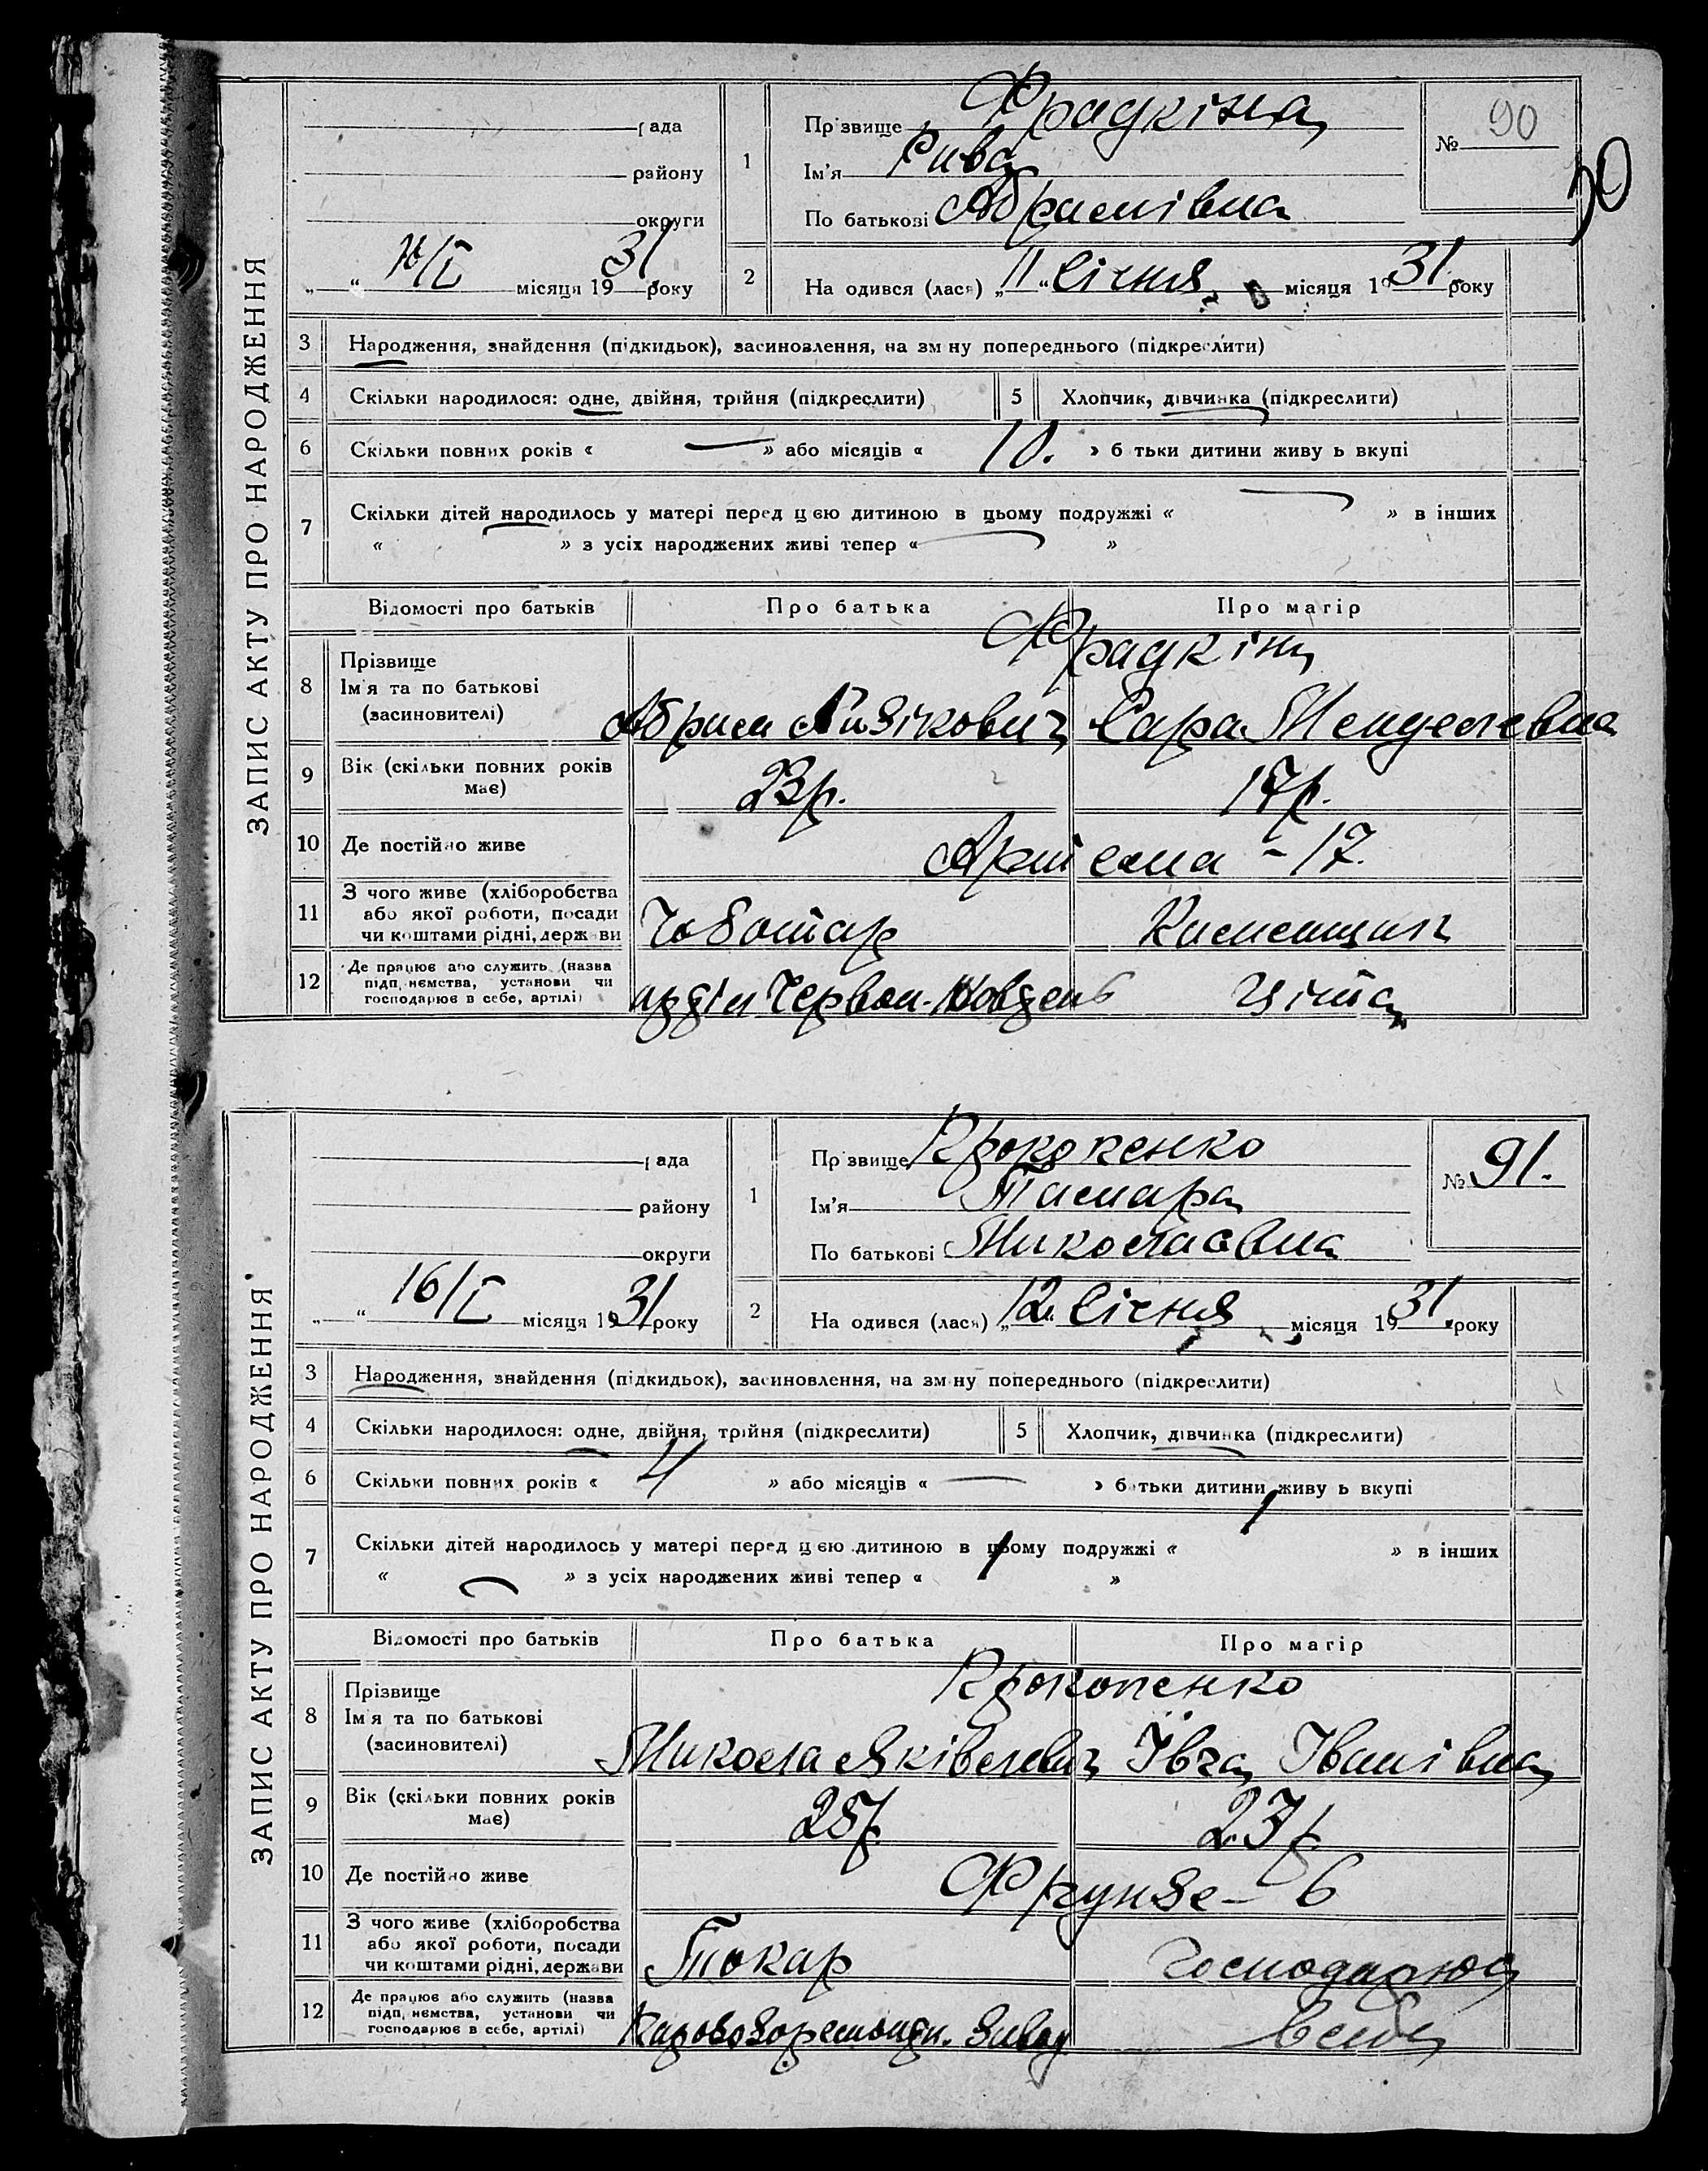 ЗАПИС АКТУ ПРО НАРОДЖЕННЯ
рада
району
округи
„ “ 16/I місяця 1931 року
1
Прізвище Фрадкіна
Ім'я Рива
По батькові Абрамівна
№ 90
90
2
Народився (лася) „11“ Січня місяця 1931 року
3 Народження, знайдення (підкидьок), засиновлення, на зміну попереднього (підкреслити)
4 Скільки народилося: одне, двійня, трійня (підкреслити)
5 Хлопчик, дівчинка (підкреслити)
6 Скільки повних років « — » або місяців « 10. » батьки дитини живуть вкупі
7 Скільки дітей народилось у матері перед цією дитиною в цьому подружжі « — » в інших
« » з усіх народжених живі тепер « — »
Відомості про батьків Про батька Про матір
8 Прізвище
Ім'я та по батькові
(засиновителі)
Фрадкін
Абрам Айзікович Сара Менделевна
9 Вік (скільки повних років має) 23р. 17р.
10 Де постійно живе Артема - 17.
11 З чого живе (хліборобства
або якої роботи, посади
чи коштами рідні, держави
Чоботар
12 Де працює або служить (назва
підприємства, установи чи
господарює в себе, артілі)
Червон. Жовдень
ЗАПИС АКТУ ПРО НАРОДЖЕННЯ
рада
району
округи
„ “ 16/I місяця 1931 року
1
Прізвище Прокопенко
Ім'я Тамара
По батькові Миколаєвна
№ 91.
2
Народився (лася) „12. Січня місяця 1931 року
3 Народження, знайдення (підкидьок), засиновлення, на зміну попереднього (підкреслити)
4 Скільки народилося: одне, двійня, трійня (підкреслити)
5 Хлопчик, дівчинка (підкреслити)
6 Скільки повних років « 4 » або місяців « — » батьки дитини живуть вкупі
7 Скільки дітей народилось у матері перед цією дитиною в цьому подружжі « 1 » в інших
« — » з усіх народжених живі тепер « 1 »
Відомості про батьків Про батька Про матір
8 Прізвище
Ім'я та по батькові
(засиновителі)
Прокопенко
Микола Яківлевич Ївга Іванівна
9 Вік (скільки повних років має) 25р. 23р
10 Де постійно живе Фрунзе - 6
11 З чого живе (хліборобства
або якої роботи, посади
чи коштами рідні, держави
Токар Господарює
12 Де працює або служить (назва
підприємства, установи чи
господарює в себе, артілі)
Паровозоремонтн. Завод в себе